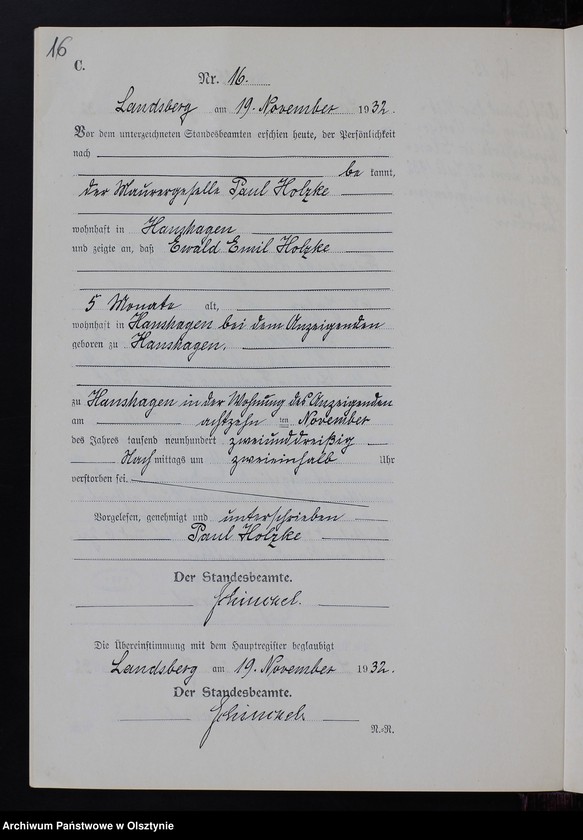 16
C.
Nr. 16.
Landsberg am 19. November 1932.
Vor dem unterzeichneten Standesbeamten erschien heute, der Persönlichkeit
nach
be kannt,
der Maurergeselle Paul Holzke
wohnhaft in Hanshagen
und zeigte an, daß Ewald Emil Holzke
5 Monate alt,
wohnhaft in Hanshagen bei dem Anzeigenden
geboren zu Hanshagen.
zu Hanshagen in der Wohnung des Anzeigenden
am achtzehn ten November
des Jahres tausend neunhundert zweiunddreißig
Nach mittags um zweieinhalb Uhr
verstorben sei.
Vorgelesen, genehmigt und unterschrieben
Paul Holzke
Der Standesbeamte.
Schinckel.
Die Übereinstimmung mit dem Hauptregister beglaubigt
Landsberg am 19. November 1932.
Der Standesbeamte.
Schinckel.
N.-R.
Archiwum Państwowe w Olsztynie